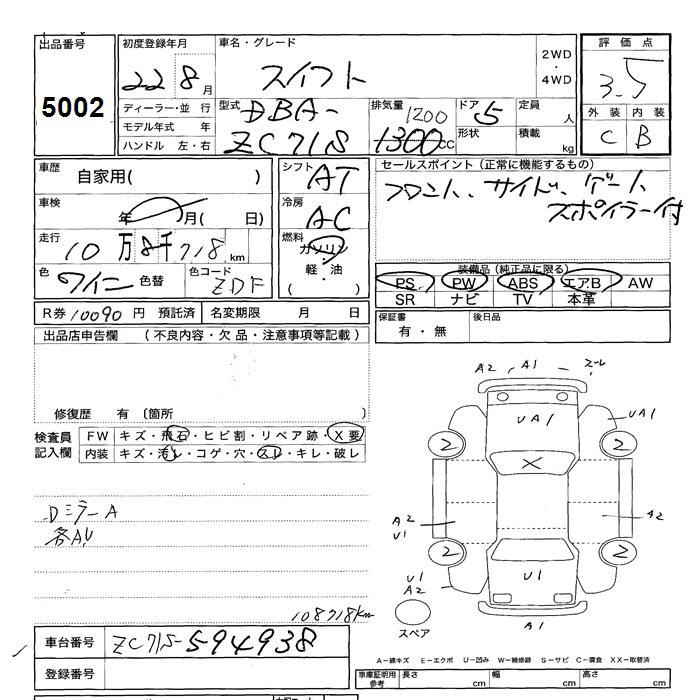 出品番号
5002
初度登録年月
22 8 月
車名・グレード
スイフト
2WD
・
4WD
評価点
3.5
外装 内装
C B
ディーラー・並 行
モデル年式 年
ハンドル 左・右
型式
DBA-
ZC71S
排気量
1200
1300cc
ドア 5
形状
定員 人
積載 kg
車歴
自家用( )
車検
年 月( 日)
走行
10万8千718km
色 ワイン 色替
色コード ZDF
シフト AT
冷房 AC
燃料
ガソリン
軽・油
( ・ )
セールスポイント(正常に機能するもの)
フロント、サイド、ゲート
スポイラー付
装備品(純正品に限る)
PS PW ABS エアB AW
SR ナビ TV 本革
R券 10090 円 預託済 名変期限 月 日
保証書
有・無
後日品
出品店申告欄 (不良内容・欠品・注意事項等記載)
修復歴 有 〔箇所 〕
検査員
記入欄
FW キズ・飛石・ヒビ割・リペア跡・X要
内装 キズ・汚レ・コゲ・穴・スレ・キレ・破レ
DミラーA
各AU
108718km
A2 A1 ズレ
UA1
UA1
2 2
X
A2
U1
A2
2 2
U1
U1
A2
A1
スペア
A-線キズ E-エクボ U-凹み W-補修跡 S-サビ C-腐食 XX-取替済
車台番号 ZC71S-594938
登録番号
車庫証明用
参考
長さ cm
幅 cm
高さ cm